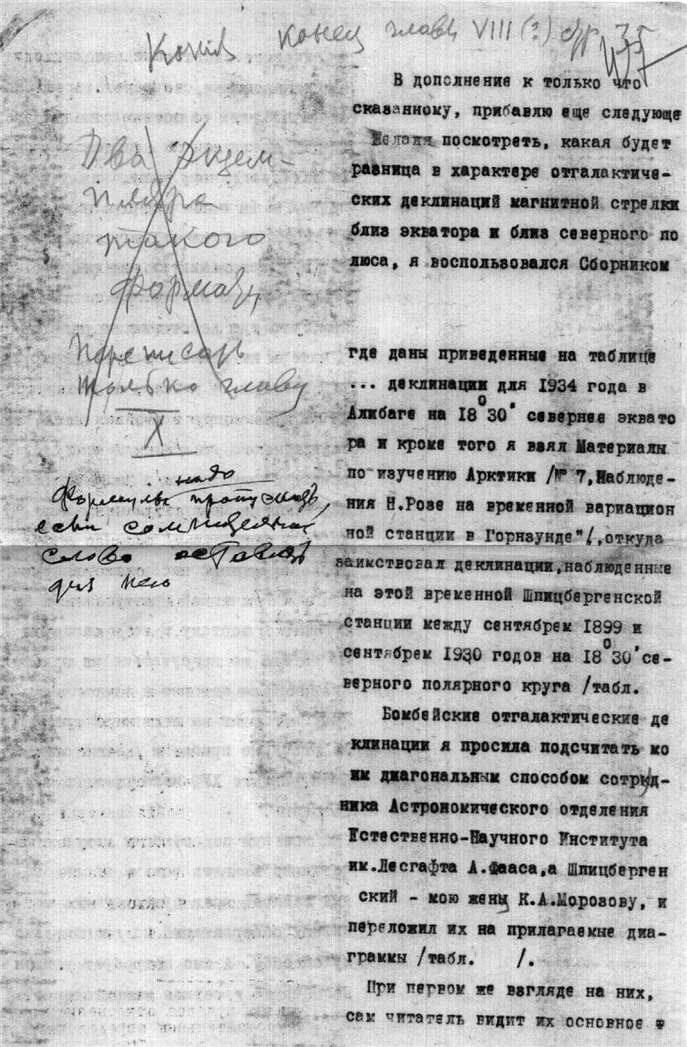 Копия конец главы VIII (?) стр 35
В дополнение к только что
сказанному, прибавлю еще следующе
Желая посмотреть, какая будет
разница в характере отгалактиче-
ских деклинаций магнитной стрелки
близ экватора и близ северного по
люса, я воспользовался Сборником
где даны приведенные на таблице
... деклинации для 1934 года в
Алибаге на 18⁰30' севернее эквато
ра и кроме того я взял Материалы
по изучению Арктики /№ 7, Наблюде-
ния Н.Розе на временной вариацион
ной станции в Горнзунде"/, откуда
заимствовал деклинации, наблюденные
на этой временной Шпицбергенской
станции между сентябрем 1899 и
сентябрем 1930 годов на 18⁰30' се-
верного полярного круга /табл.
Бомбейские отгалактические де
клинации я просила подсчитать мо
им диагональным способом сотруд-
ника Астрономического отделения
Естественно-Научного Института
им.Лесгафта А.Фааса, а Шпицберген
ский - мою жену К.А.Морозову, и
переложил их на прилагаемые диа-
граммы /табл. /.
При первом же взгляде на них,
сам читатель видит их основное
Два экзем-
пляра
такого
формата
Переписать
только главу
X
надо
Формулы пропускать
если
слово оставить
для него